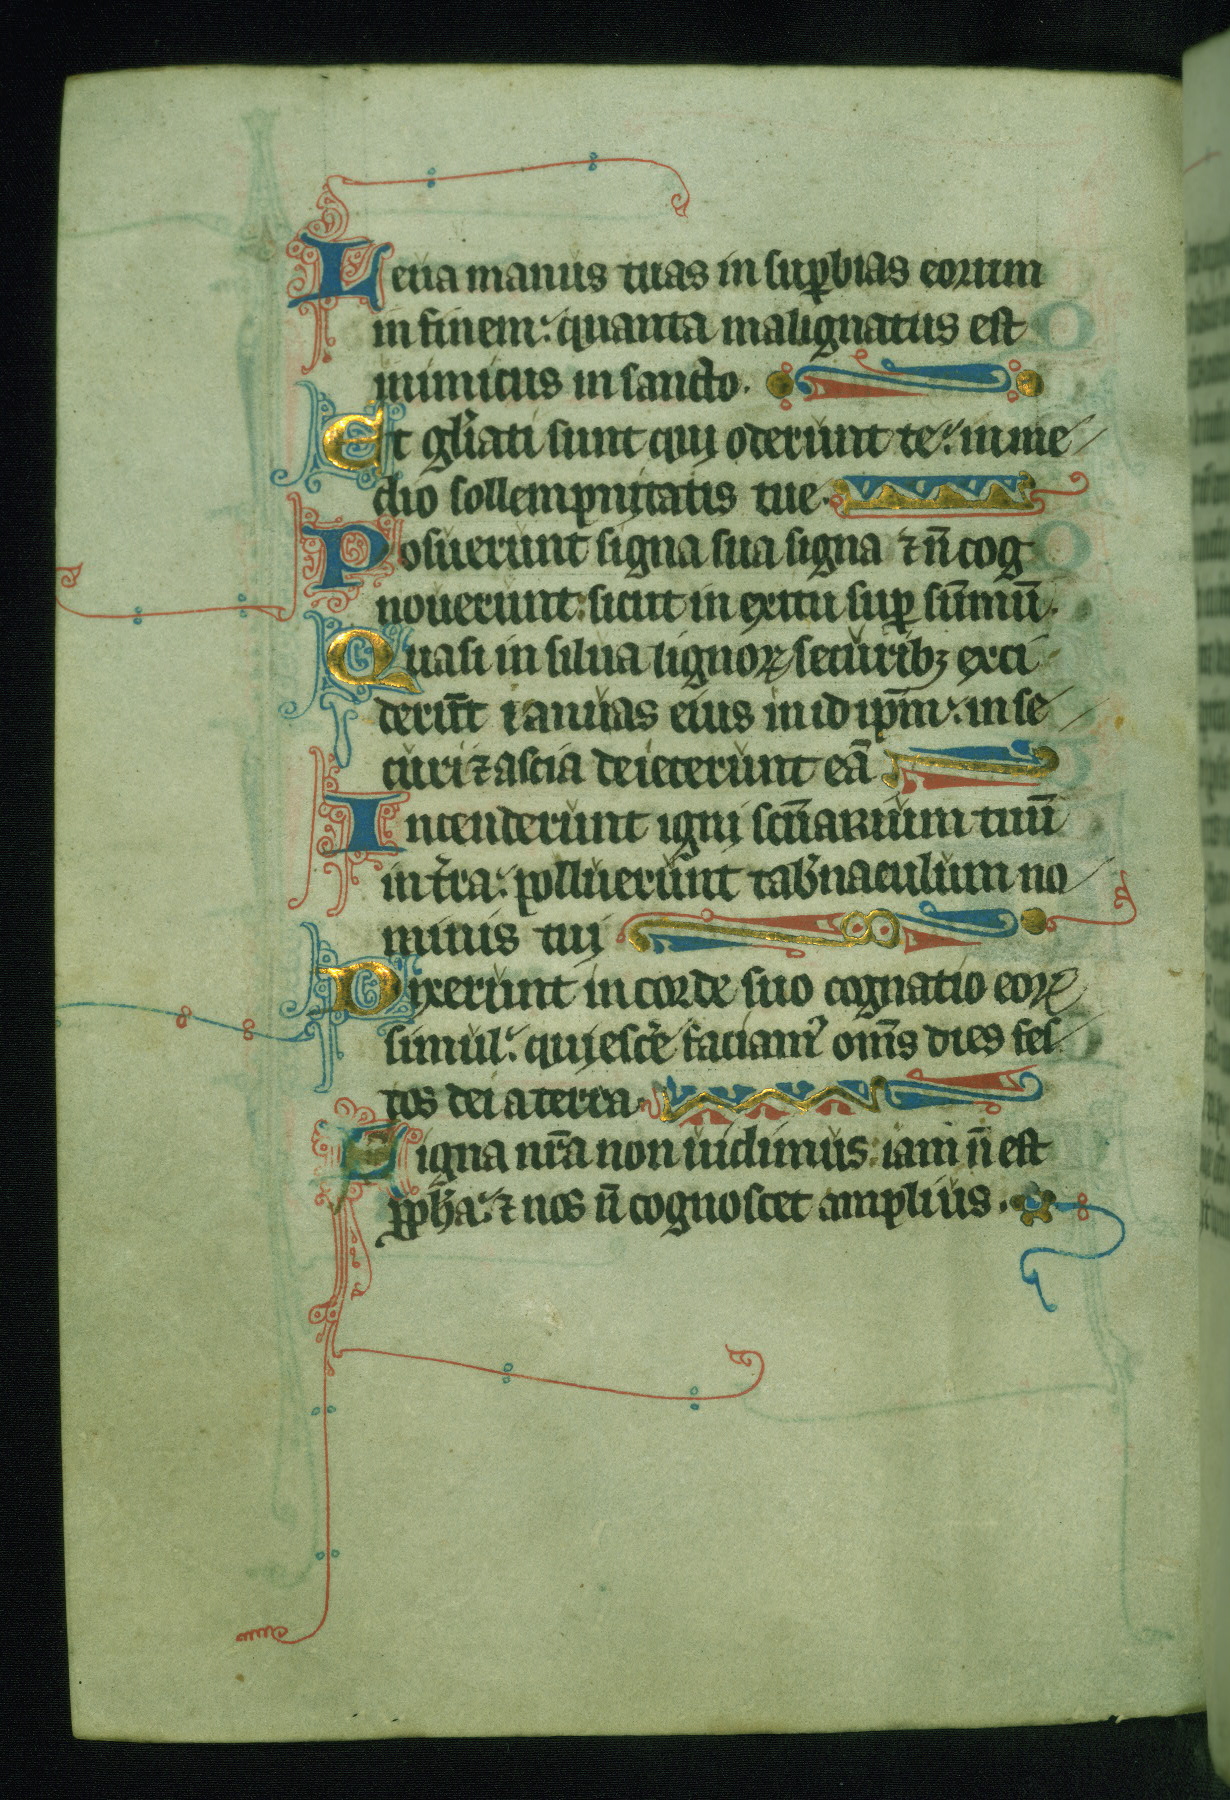 Leua manus tuas in suꝑbias eorum
in finem: quanta malignatus est
inimicus in sancto.
Et gl̃iati sunt qui oderunt te: in me
dio sollempnitatis tue.
Posuerunt signa sua signa ⁊ ñ cog
nouerunt: sicut in exitu suꝑ sum̃ũ.
Quasi in silua lignoꝝ securibꝫ exci
derũt ianuas eius in id ip̃m: in se
curi ⁊ ascia deiecerunt eã
Incenderunt igni sc̃uarium tuũ
in t̃ra: polluerunt tab̃naculum no
minis tui
Dixerunt in corde suo cognatio eoꝝ
simul: quiesc̃e faciamꝰ om̃s dies fes
tos dei a terra.
Signa nr̃a non uidimus: iam ñ est
ꝓph̃a: ⁊ nos ñ cognoscet amplius.